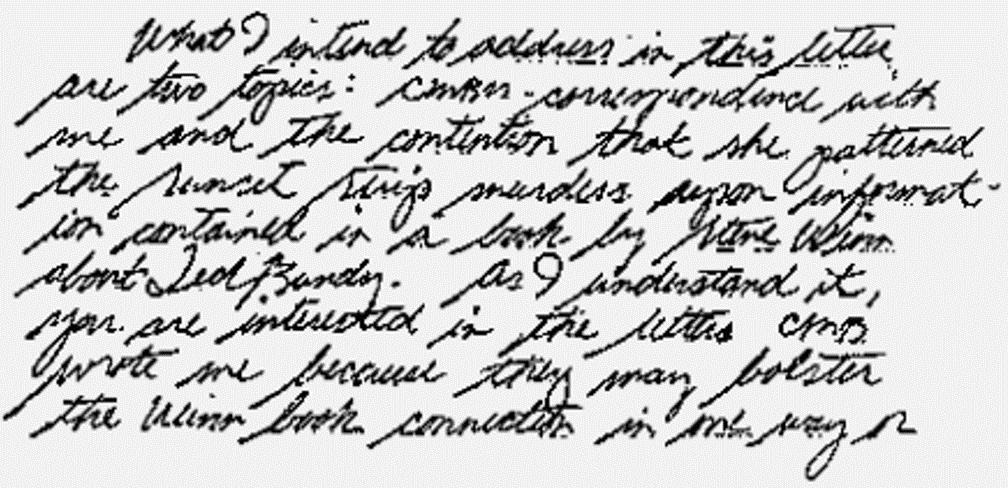 What I intend to address in this letter
are two topics: CMB's correspondence with
me and the contention that she patterned
the Sunset Strip murders upon informat-
ion contained in a book by Steve Winn
about Ted Bundy. As I understand it,
you are interested in the letters CMB
wrote me because they may bolster
the Winn book connection in one way or